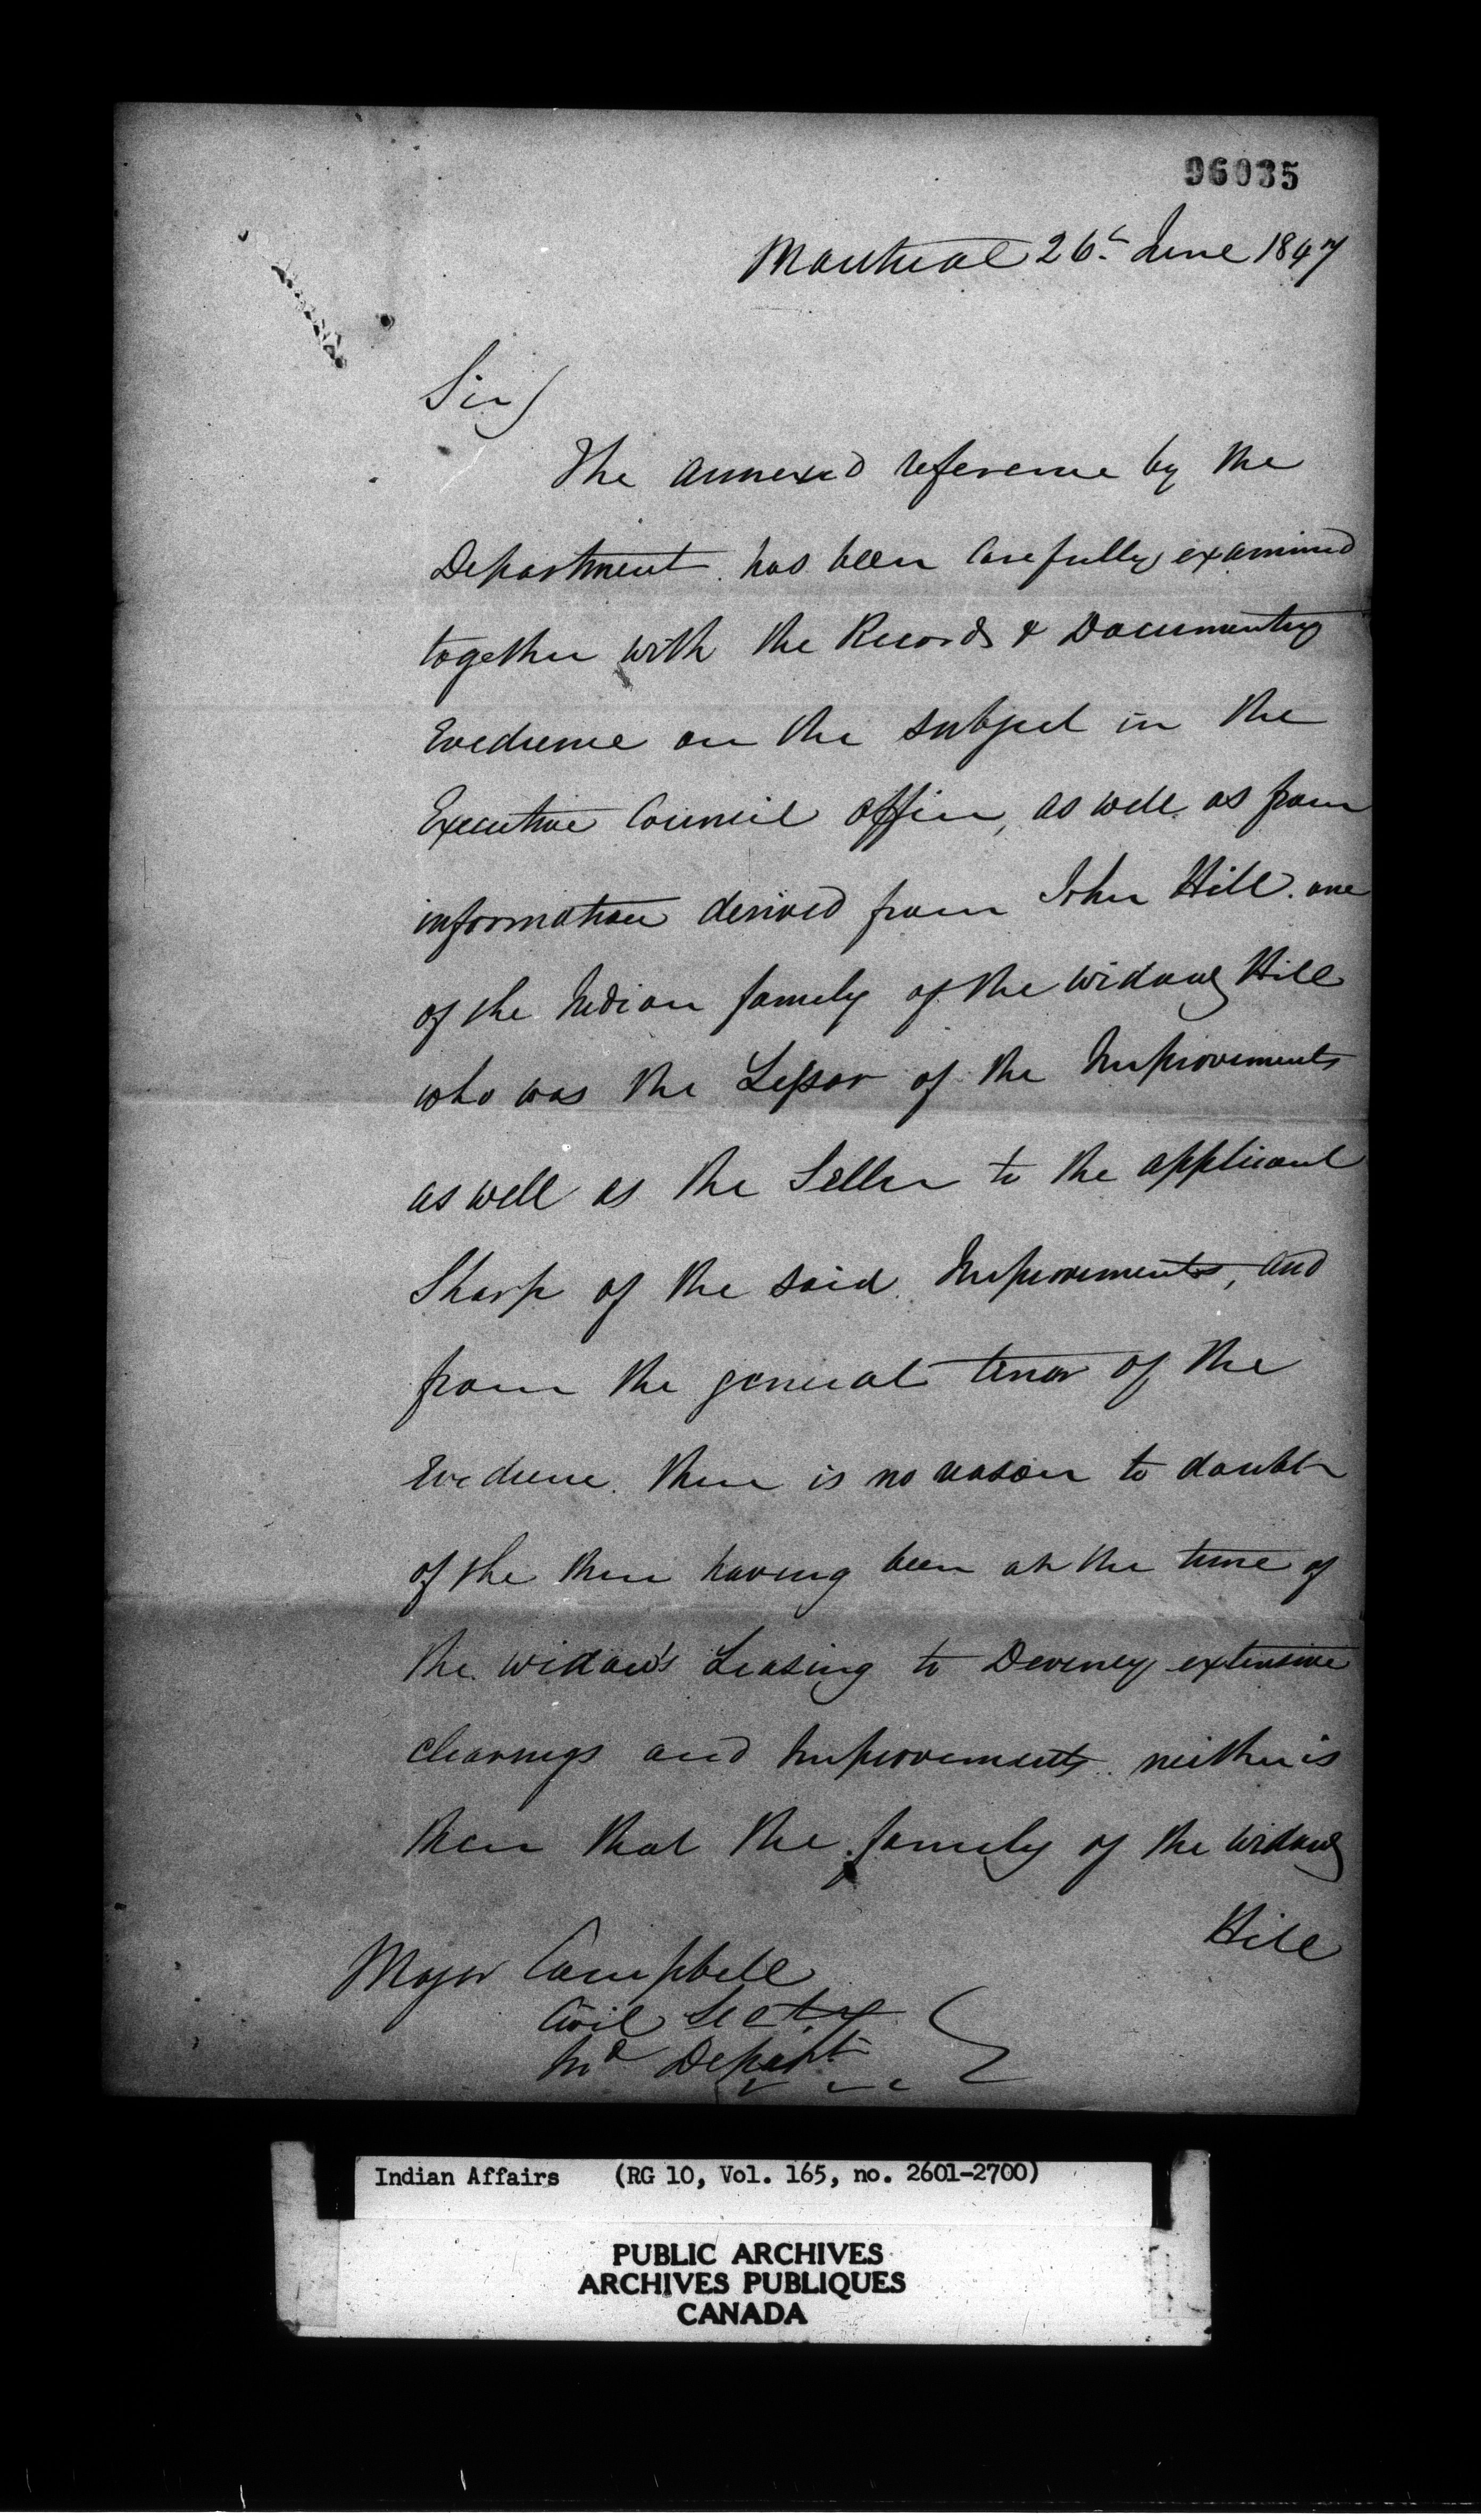 96035
Montreal 26th June 1847
Sir,
The annexed reference by the
Department has been Carefully examined
together with the Records & Documentary
Evidence on the subject in the
Executive Council Office, as well as from
information derived from John Hill one
of the Indian family of the Widow Hill
who was the Lessor of the Improvements
as well as the Seller to the applicant
Sharp of the said Improvements, and
from the general tenor of the
Evidence there is no reason to doubt
of the there having been at the time of
the Widow's Leasing to Deveney extensive
clearings and Improvements neither is
there that the family of the Widow
Hill
Major Campbell
Civil Secty
Ind Depart
Indian Affairs (RG 10, Vol. 165, no. 2601-2700)
PUBLIC ARCHIVES
ARCHIVES PUBLIQUES
CANADA